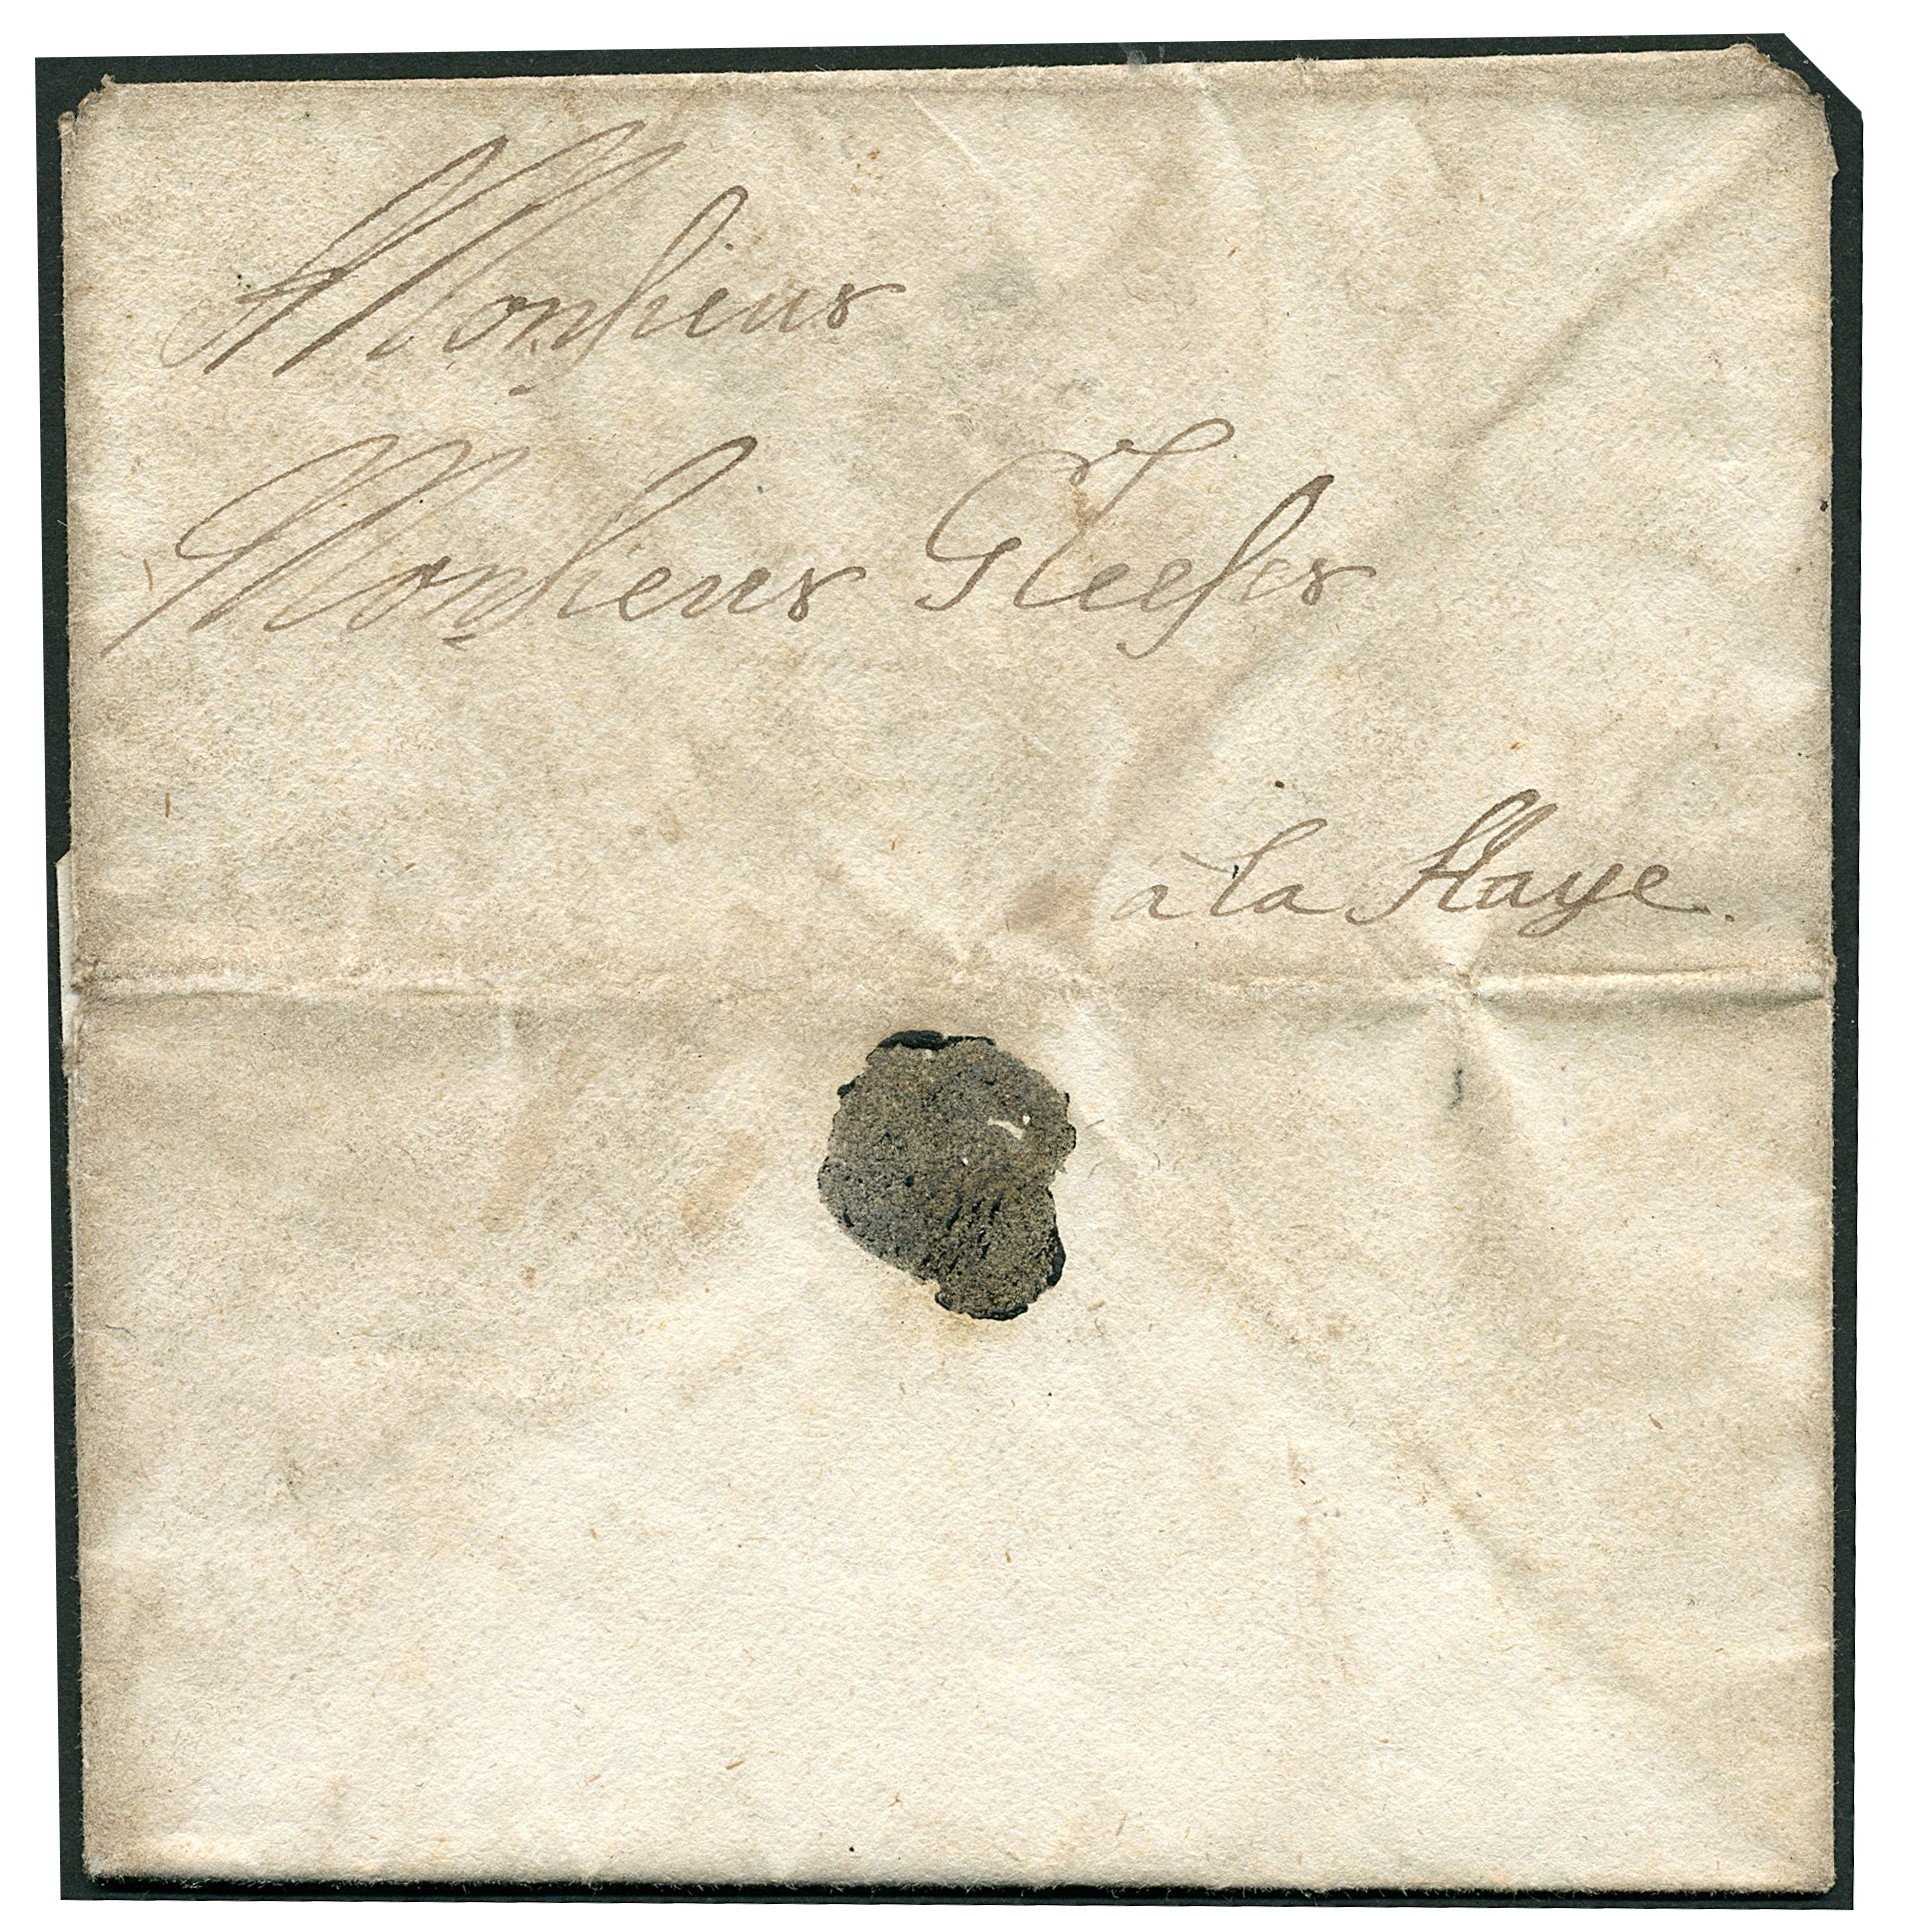 A Monsieur
Monsieur Gleser
a la Haye.